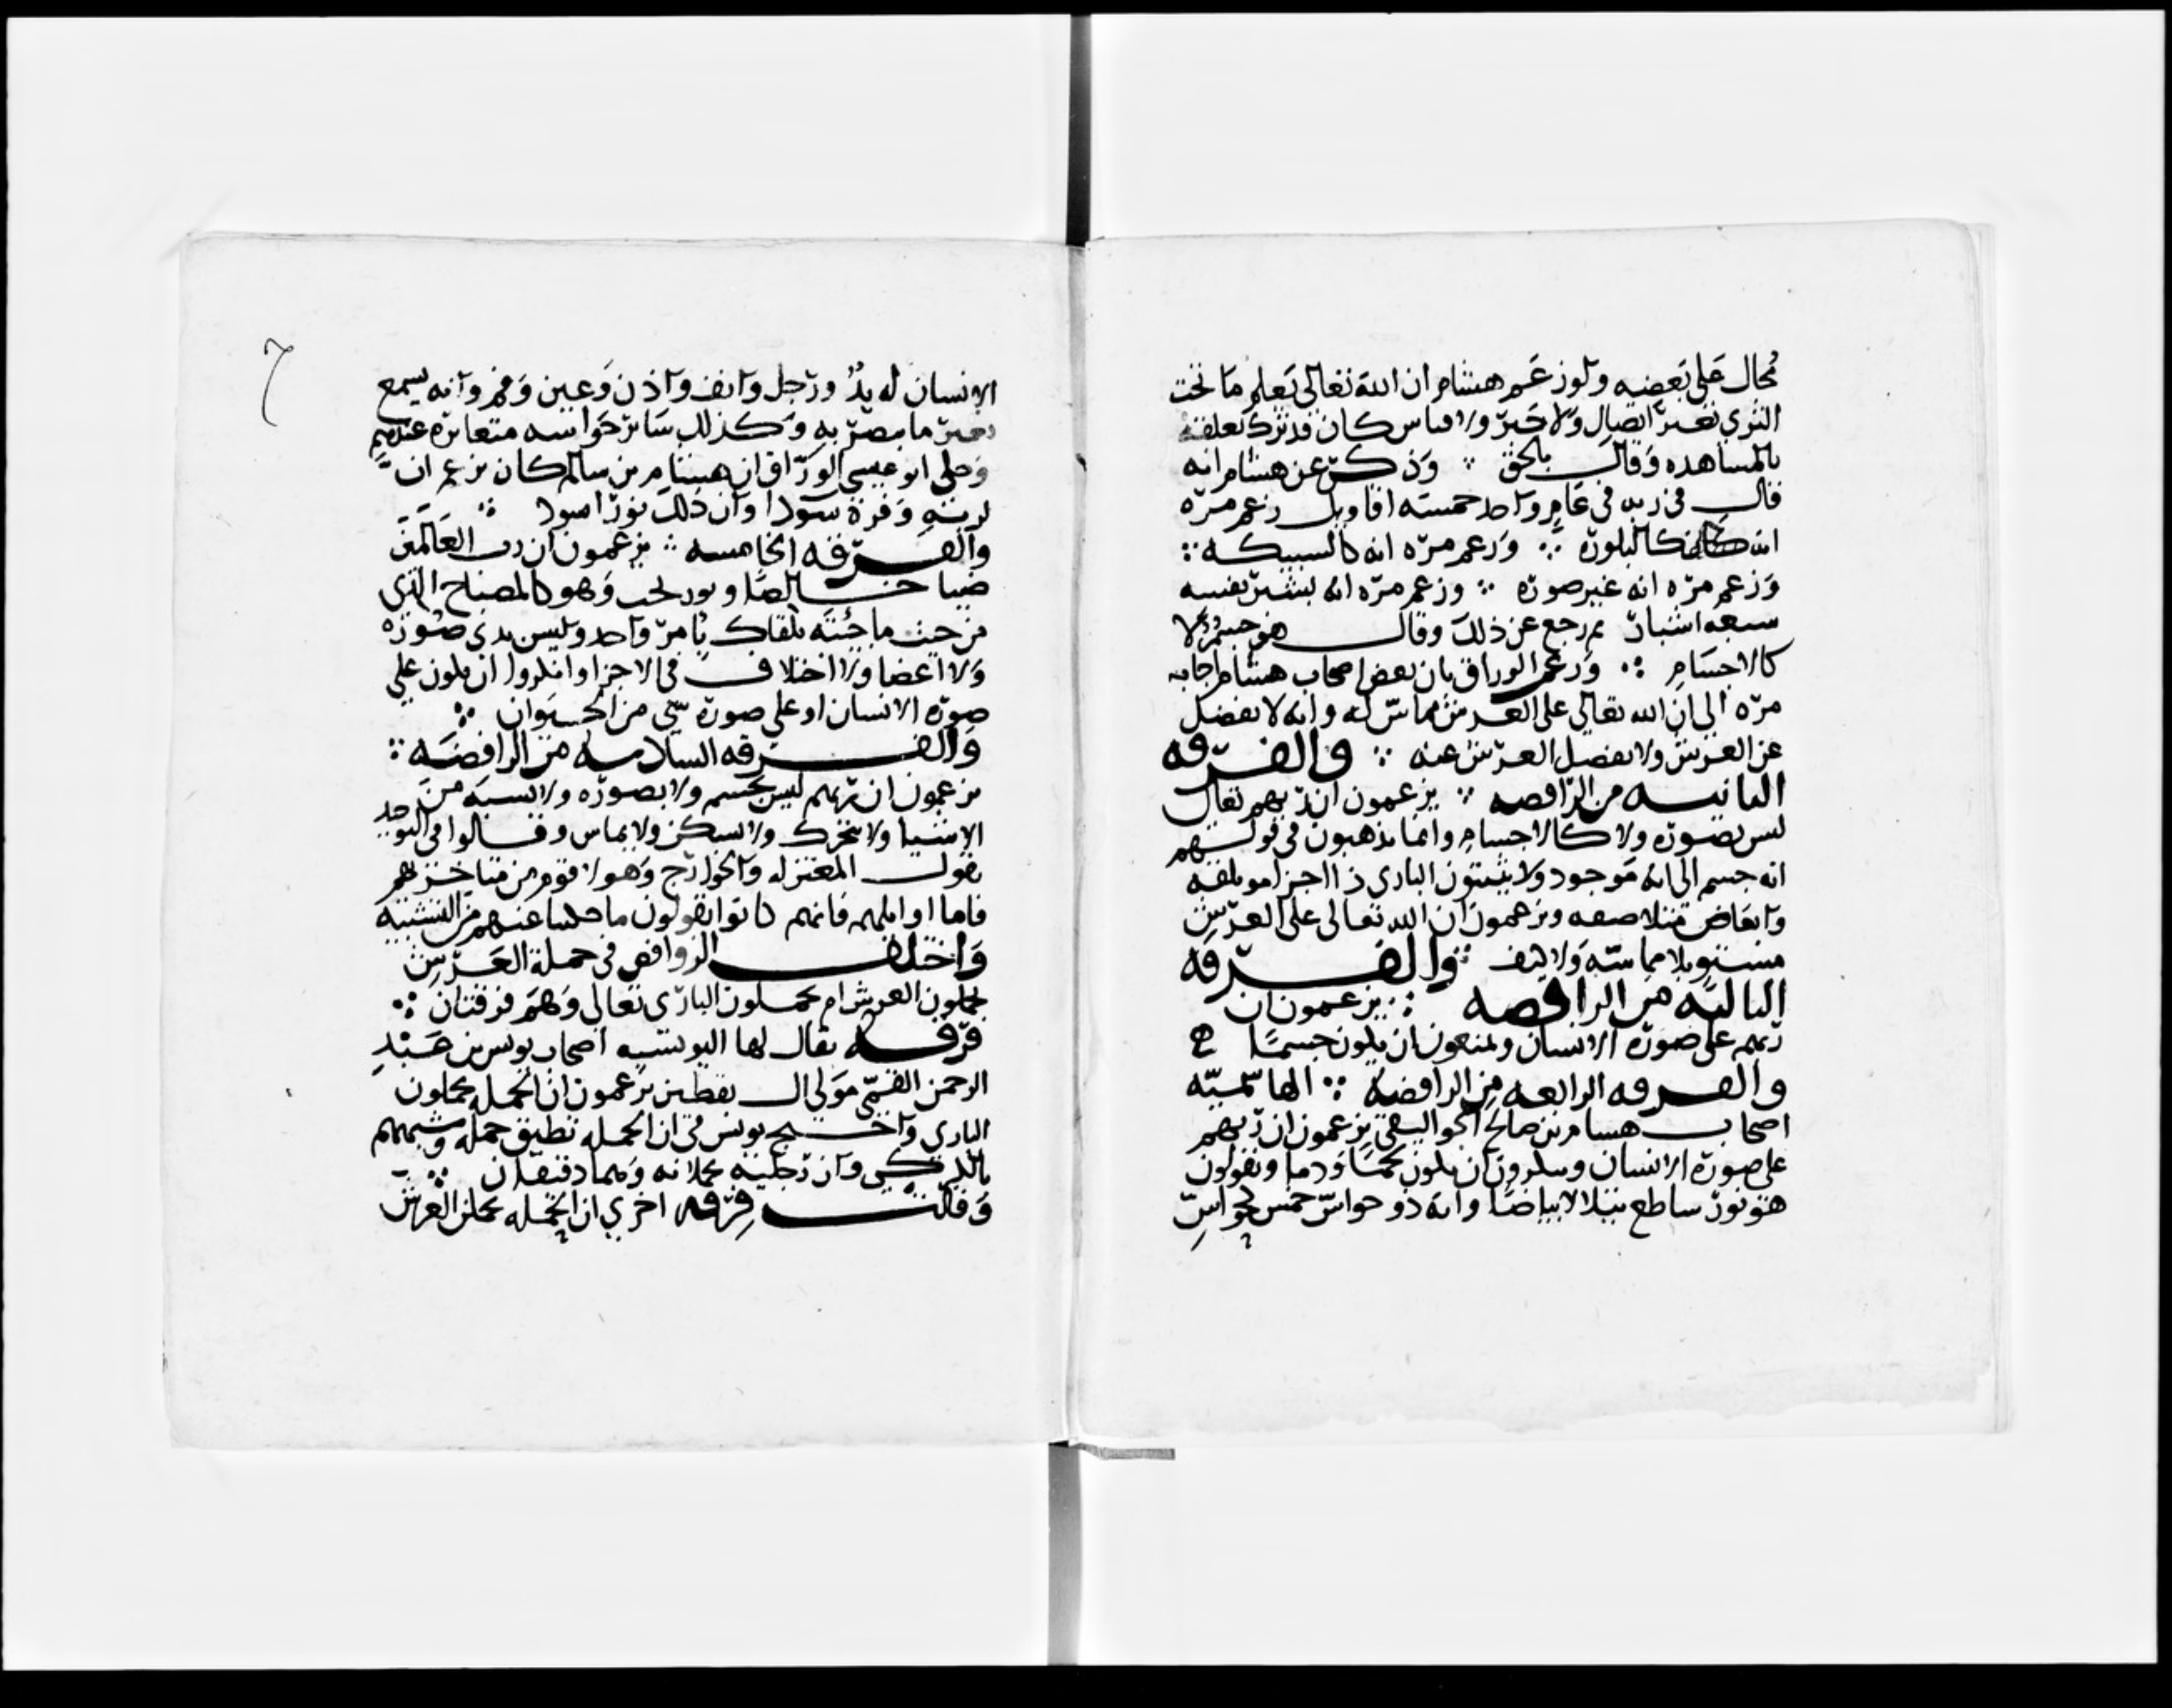 محال على بعضه ولو زعم هشام ان الله تعالى يعلم ما تحت
الثرى بغير اتصال ولا خبر ولا قياس كان قد ترك تعلقه
بالمشاهده وقال بالحق ∴ وذكر عن هشام انه
قال في ربه في عام واحد خمسه اقاويل زعم مره
انه كالبلوره ∴ وزعم مره انه كالسبيكه ∴
وزعم مره انه غير صوره ∴ وزعم مره انه بشبر نفسه
سبعه اشبار ثم رجع عن ذلك وقال هو جسم لا
كالاجسام ∴ وزعم الوراق بان بعض اصحاب هشام اجابه
مره الى ان الله تعالى على العرش مماس له وانه لا يفضل
عن العرش ولا يفضل العرش عنه ∴ والفرقه
الثانيه من الرافضه ∴ يزعمون ان ربهم تعالى
ليس بصوره ولا كالاجسام وانما يذهبون في قولهم
انه جسم الى انه موجود ولا يثبتون الباري ذا اجزا موتلفه
وابعاض متلاصقه ويزعمون ان الله تعالى على العرش
مستو بلا مماسه ولا كيف ∴ والفرقه
الثالثه من الرافضه ∴ يزعمون ان
ربهم على صوره الانسان ويمنعون ان يكون جسما
والفرقه الرابعه من الرافضه ∴ الهاشميه
اصحاب هشام بن سالم الجواليقي يزعمون ان ربهم
على صوره الانسان وينكرون ان يكون لحما ودما ويقولون
هو نور ساطع يتلالا بياضا وانه ذو حواس خمس كحواس
٦
الانسان له يد ورجل وانف واذن وعين وفم وانه يسمع
بغير ما يبصر به وكذلك سائر حواسه متغايره عندهم
وحكى ابو عيسى الوراق ان هشام بن سالم كان يزعم ان
لربه وفرة سودا وان ذلك نور اسود ∴
والفرقه الخامسه ∴ يزعمون ان رب العالمين
ضيا خالص ونور بحت وهو كالمصباح الذي
من حيث ما جئته يلقاك بامر واحد وليس بذي صوره
ولا اعضا ولا اختلاف في الاجزا وانكروا ان يكون على
صوره الانسان او على صورة شي من الحيوان ∴
والفرقه السادسه من الرافضه ∴
يزعمون ان ربهم ليس بجسم ولا بصوره ولا يشبه من
الاشيا ولا يتحرك ولا يسكن ولا يماس وقالوا في التوحيد
بقول المعتزله والخوارج وهولا قوم من متاخريهم
فاما اوايلهم فانهم كانوا يقولون ما حكينا عنهم من التشبيه
واختلف الروافض في حملة العرش
يحملون العرش ام يحملون الباري تعالى وهم فرقتان ∴
فرقه يقال لها اليونسيه اصحاب يونس بن عبد
الرحمن القمي مولى ال يقطين يزعمون ان الحمله يحملون
الباري واحتج يونس في ان الحمله تطيق حمله وشبههم
بالكركي وان رجليه تحملانه وهما دقيقتان ∴
وقالت فرقه اخرى ان الحمله تحمل العرش